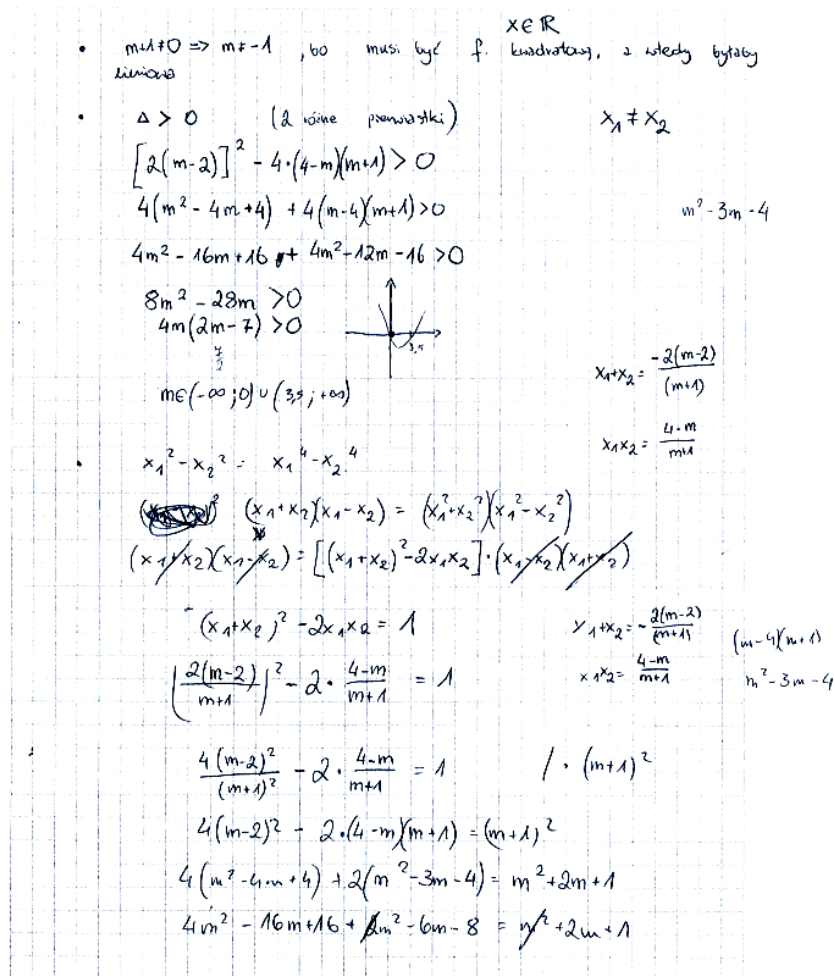 x∈ℝ
• m+1≠0 => m≠-1 , bo musi być f. kwadratowa, a wtedy byłaby
liniowa
• Δ > 0 (2 różne pierwiastki) x₁ ≠ x₂
[2(m-2)]² - 4·(4-m)(m+1) > 0
4(m² - 4m+4) + 4(m-4)(m+1) >0 m² - 3m - 4
4m² - 16m + 16 + 4m² - 12m - 16 >0
8m² - 28m >0
4m(2m - 7) >0
7/2
3,5
m∈(-∞;0)∪(3,5;+∞)
x₁+x₂ = -2(m-2)/(m+1)
x₁x₂ = 4-m/m+1
• x₁² - x₂² = x₁⁴ - x₂⁴
(x₁+x₂)(x₁-x₂) = (x₁²+x₂²)(x₁²-x₂²)
(x₁+x₂)(x₁-x₂) = [(x₁+x₂)² - 2x₁x₂]·(x₁-x₂)(x₁+x₂)
(x₁+x₂)² - 2x₁x₂ = 1 x₁+x₂ = - 2(m-2)/(m+1) (m-4)(m+1)
(2(m-2)/m+1)² - 2· 4-m/m+1 = 1 x₁x₂ = 4-m/m+1 m² - 3m - 4
4(m-2)²/(m+1)² - 2· 4-m/m+1 = 1 /·(m+1)²
4(m-2)² - 2·(4-m)(m+1) = (m+1)²
4(m² - 4m + 4) + 2(m² - 3m - 4) = m² + 2m + 1
4m² - 16m + 16 + 2m² - 6m - 8 = m² + 2m + 1